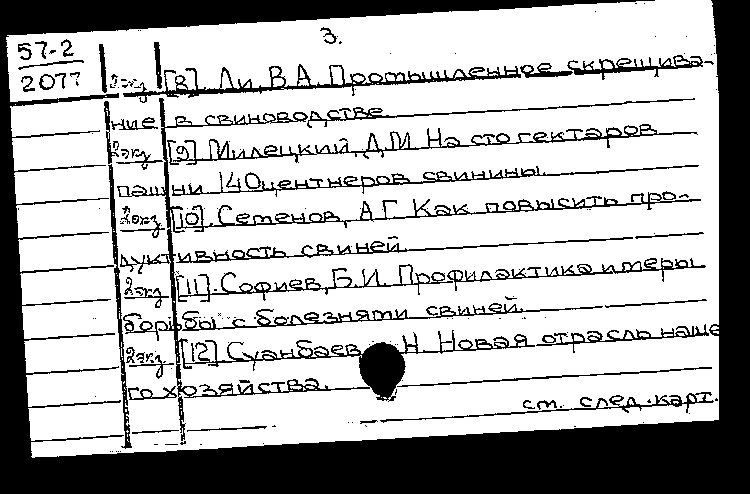 3.
57-2
2077
2экз. [8]. Ли, В.А. Промышленное скрещива-
ние в свиноводстве.
2экз [9] Милецкий, Д.М. На сто гектаров
пашни 140центнеров свинины.
2экз [10]. Семенов, А.Г. Как повысить про-
дуктивность свиней.
2экз [11]. Софиев, Б.И. Профилактика и меры
борьбы с болезнями свиней.
2экз [12] Суанбаев Н. Новая отрасль наше
го хозяйства.
см. след. карт.